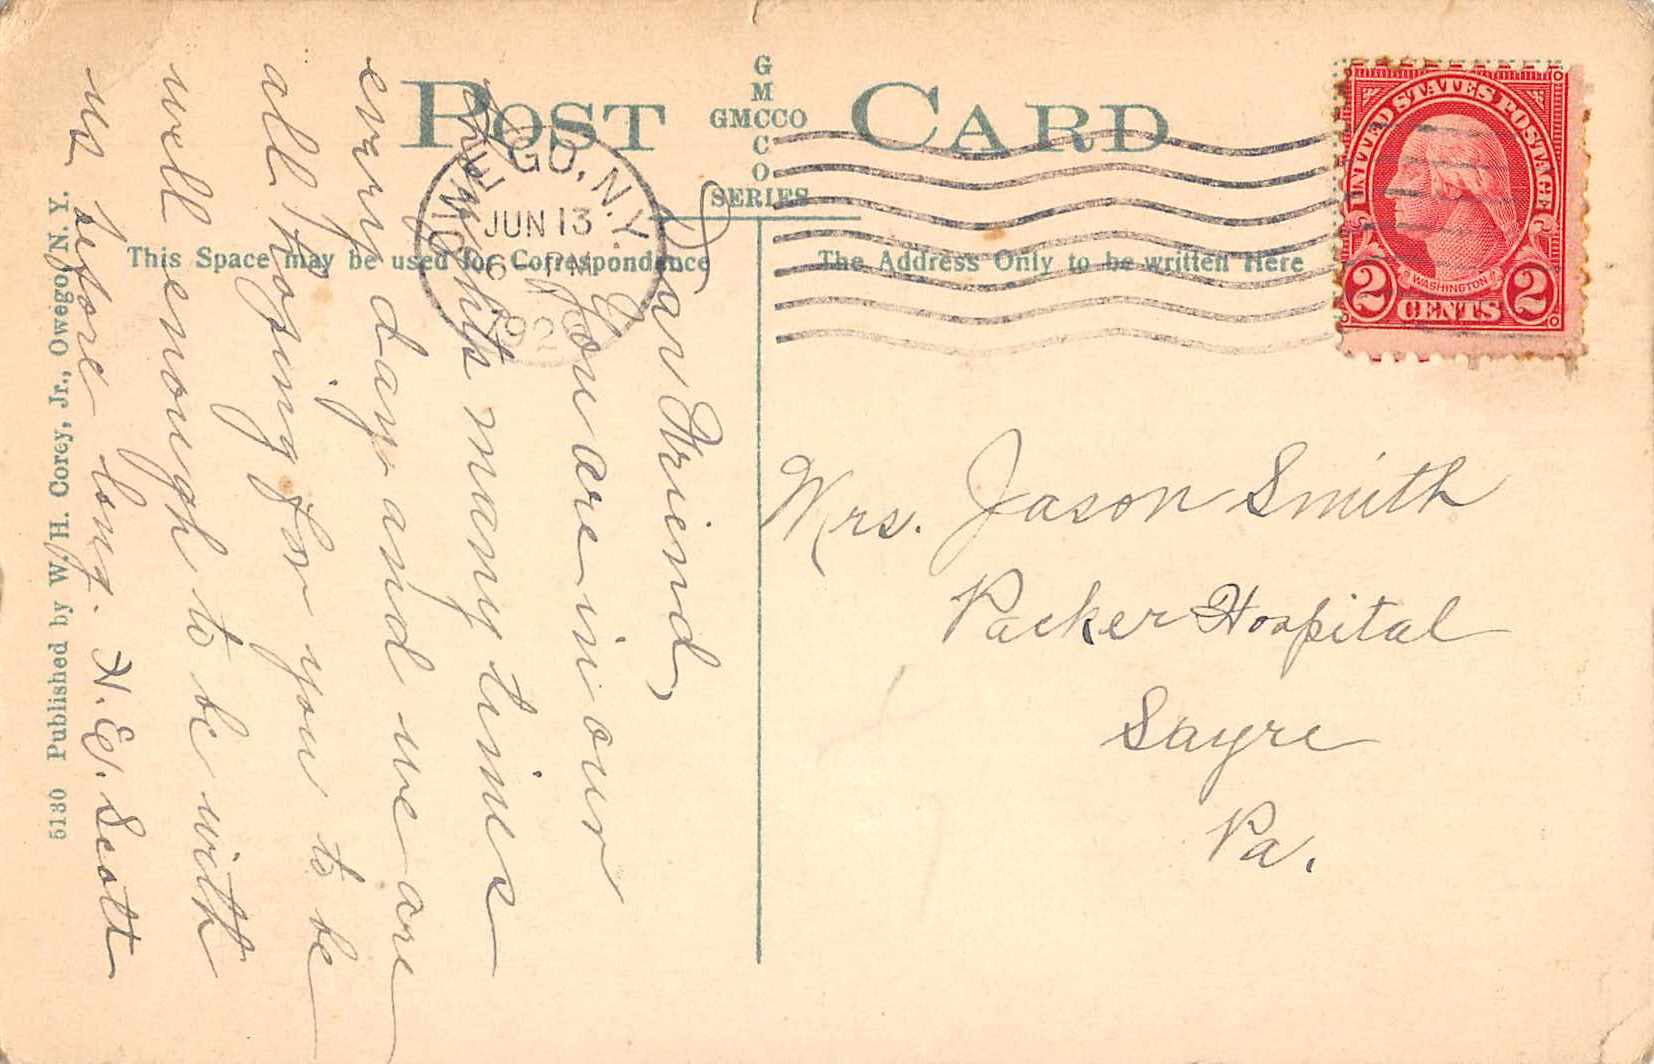 POST CARD
G
M
GMCCO
C
O
SERIES
OWEGO, N.Y.
JUN 13
6 - PM
192
This Space may be used for Correspondence
The Address Only to be written Here
UNITED STATES POSTAGE
WASHINGTON
2 CENTS 2
Dear Friend,
You are in our
thoughts many times
every day and we are
all hoping for you to be
well enough to be with
us before long.
H. E. Scott
Mrs. Jason Smith
Packer Hospital
Sayre
Pa.
5130 Published by W. H. Corey, Jr., Owego, N. Y.